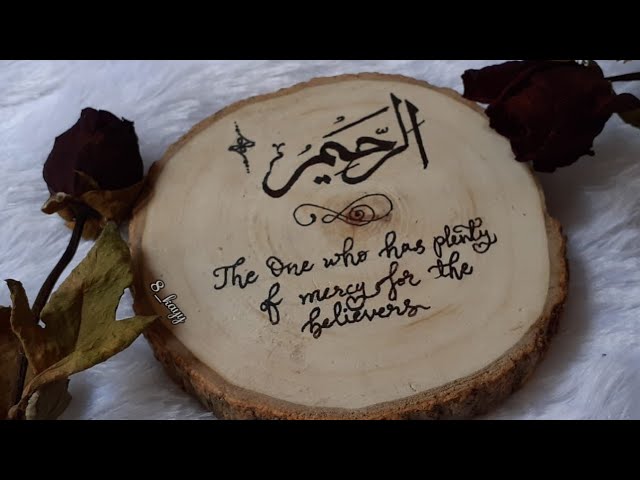 الرَّحِيمُ
The One who has plenty
of mercy for the
believers
8_kayy